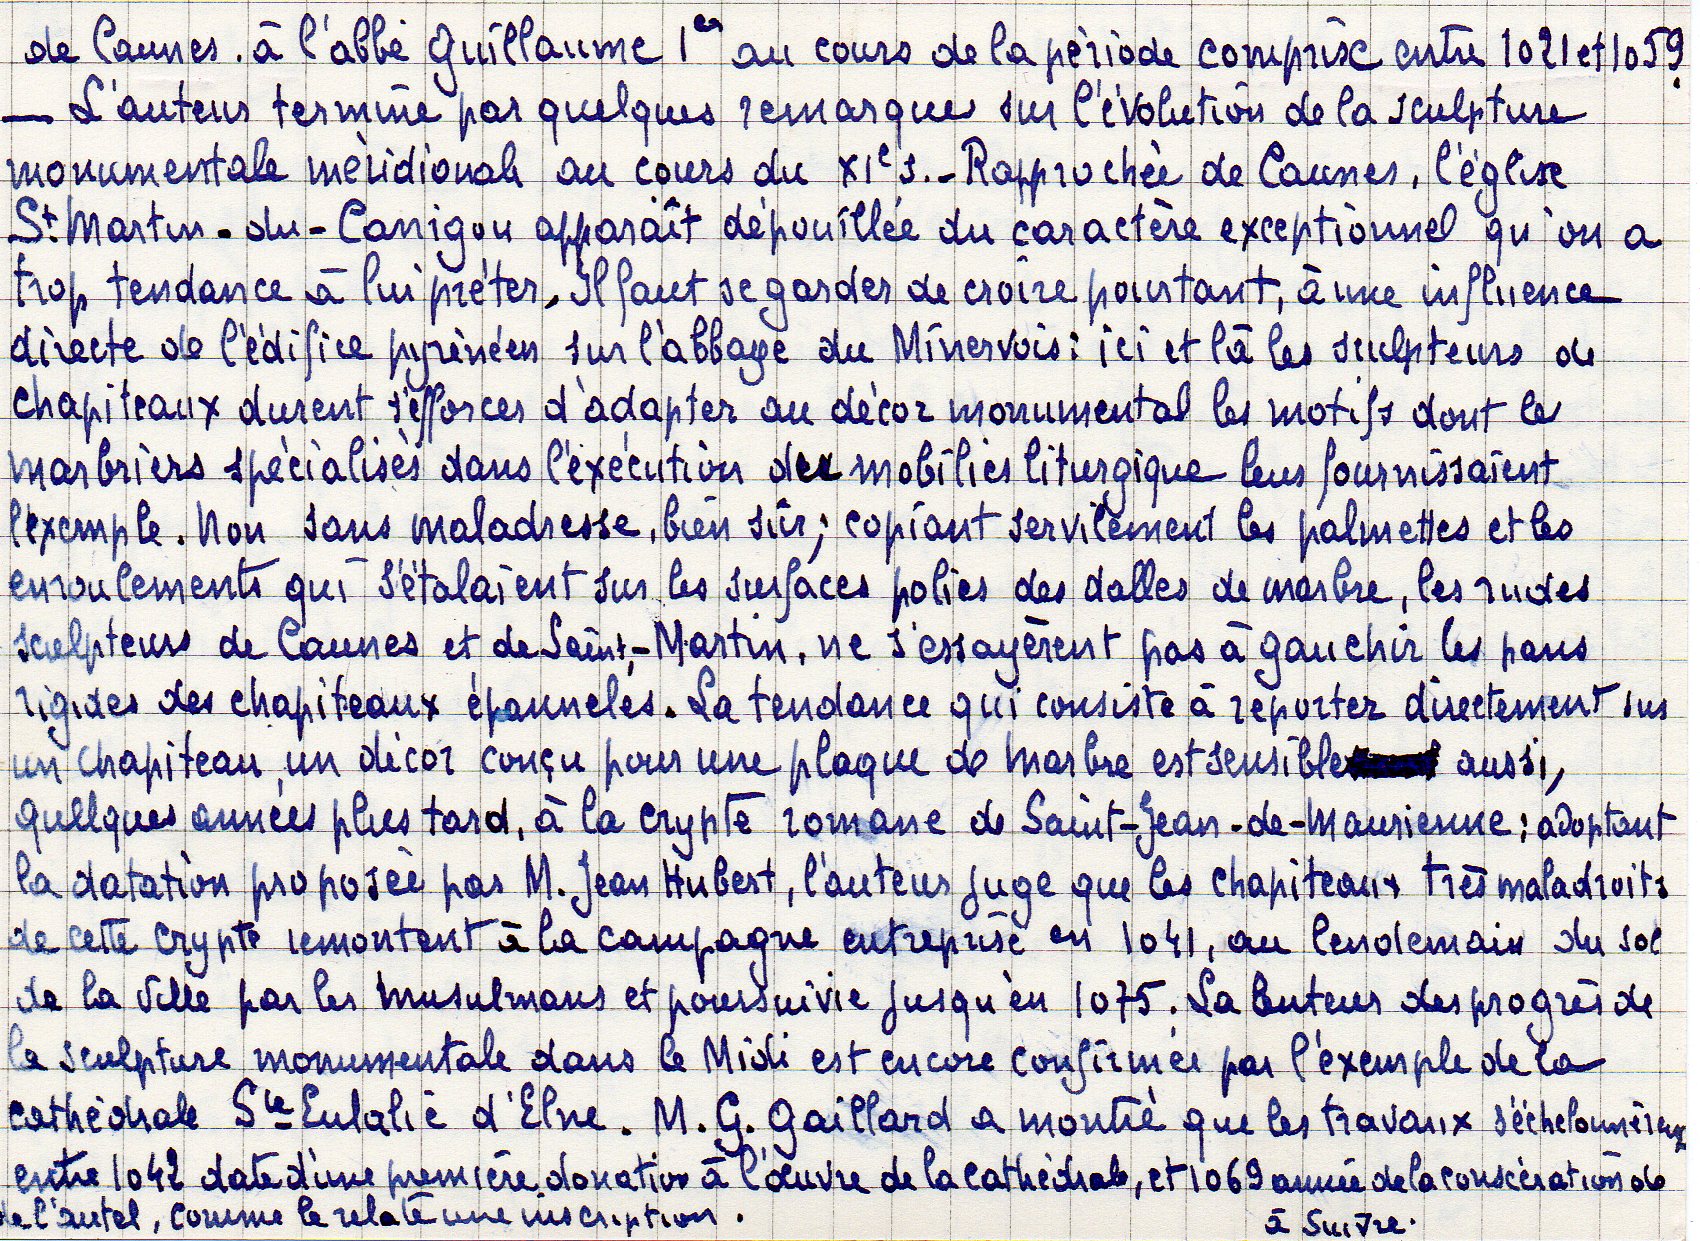 de Caunes. à l'abbé Guillaume 1er au cours de la période comprise entre 1021 et 1059.
— L'auteur termine par quelques remarques sur l'évolution de la sculpture
monumentale méridionale au cours du XIe s. - Rapprochée de Caunes, l'église
St Martin-du-Canigou apparaît dépouillée du caractère exceptionnel qu'on a
trop tendance à lui prêter. Il faut se garder de croire pourtant, à une influence
directe de l'édifice pyrénéen sur l'abbaye du Minervois : ici et là les sculpteurs de
chapiteaux durent s'efforcer d'adapter au décor monumental les motifs dont les
marbriers spécialisés dans l'éxécution de mobilier liturgique leur fournissaient
l'exemple. Non sans maladresse, bien sûr ; copiant servilement les palmettes et les
enroulements qui s'étalaient sur les surfaces polies des dalles de marbre, les rudes
sculpteurs de Caunes et de Saint-Martin, ne s'essayèrent pas à gauchir les pans
rigides des chapiteaux épannelés. La tendance qui consiste à reporter directement sur
un chapiteau un décor conçu pour une plaque de marbre est sensible aussi,
quelques années plus tard, à la crypte romane de Saint-Jean-de-Maurienne ; adoptant
la datation proposée par M. Jean Hubert, l'auteur juge que les chapiteaux très maladroits
de cette crypte remontent à la campagne entreprise en 1041, au lendemain du sac
de la ville par les musulmans et poursuivie jusqu'en 1075. La lenteur des progrès de
la sculpture monumentale dans le Midi est encore confirmée par l'exemple de la
cathédrale Ste Eulalie d'Elne. M. G. Gaillard a montré que les travaux s'échelonnèrent
entre 1042 date d'une première donation à l'œuvre de la cathédrale, et 1069 année de la conscération de
de l'autel, comme le relate une inscription.
à suivre.